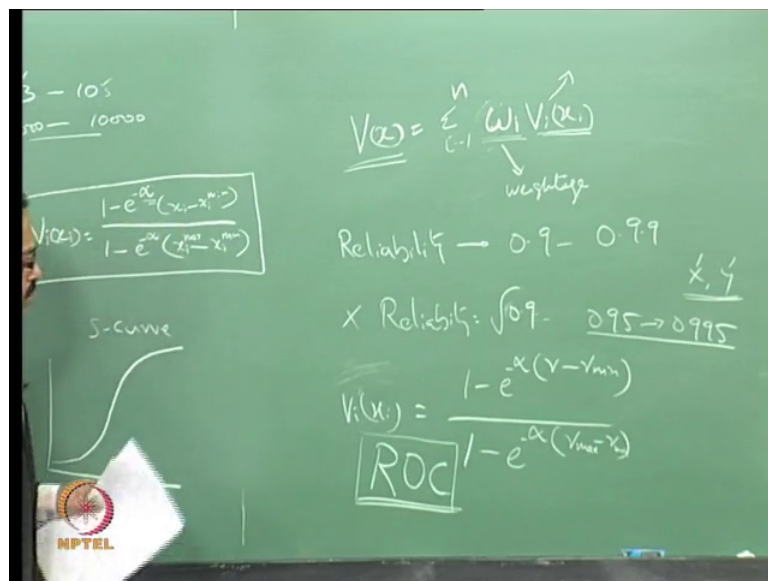 3 – 10⁵
000 – 10000
Vi(xi) = 1 – e^-α(xi – xi^min) / 1 – e^-α(xi^max – xi^min)
S-curve
V(x) = Σ i=1 n ωi Vi(xi)
weightage
Reliability → 0.9 – 0.99
x́, ý
X Reliability: √0.9 – 0.95 → 0.995
Vi(xi) = 1 – e^-α(r – r min) / 1 – e^-α(r max – r min)
ROC
NPTEL